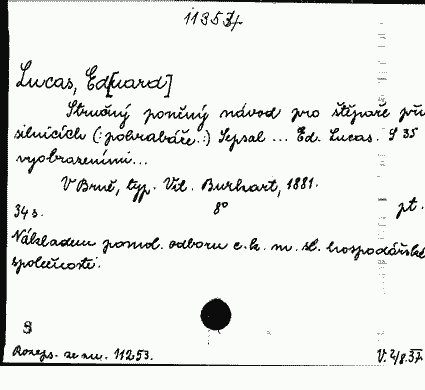 11353
Lucas, Ed[uard]
Stručný poučný návod pro štěpaře při
silnicích (:pohrabáře:) Sepsal ... Ed. Lucas. S 35
vyobrazeními...
V Brně, typ. Vil. Burkart, 1881.
34 s. 8° pt.
Nákladem pomol. odboru c. k. m. sl. hospodářské
společnosti.
S
Rozeps. ze nu. 11253. V. 2/8.37.